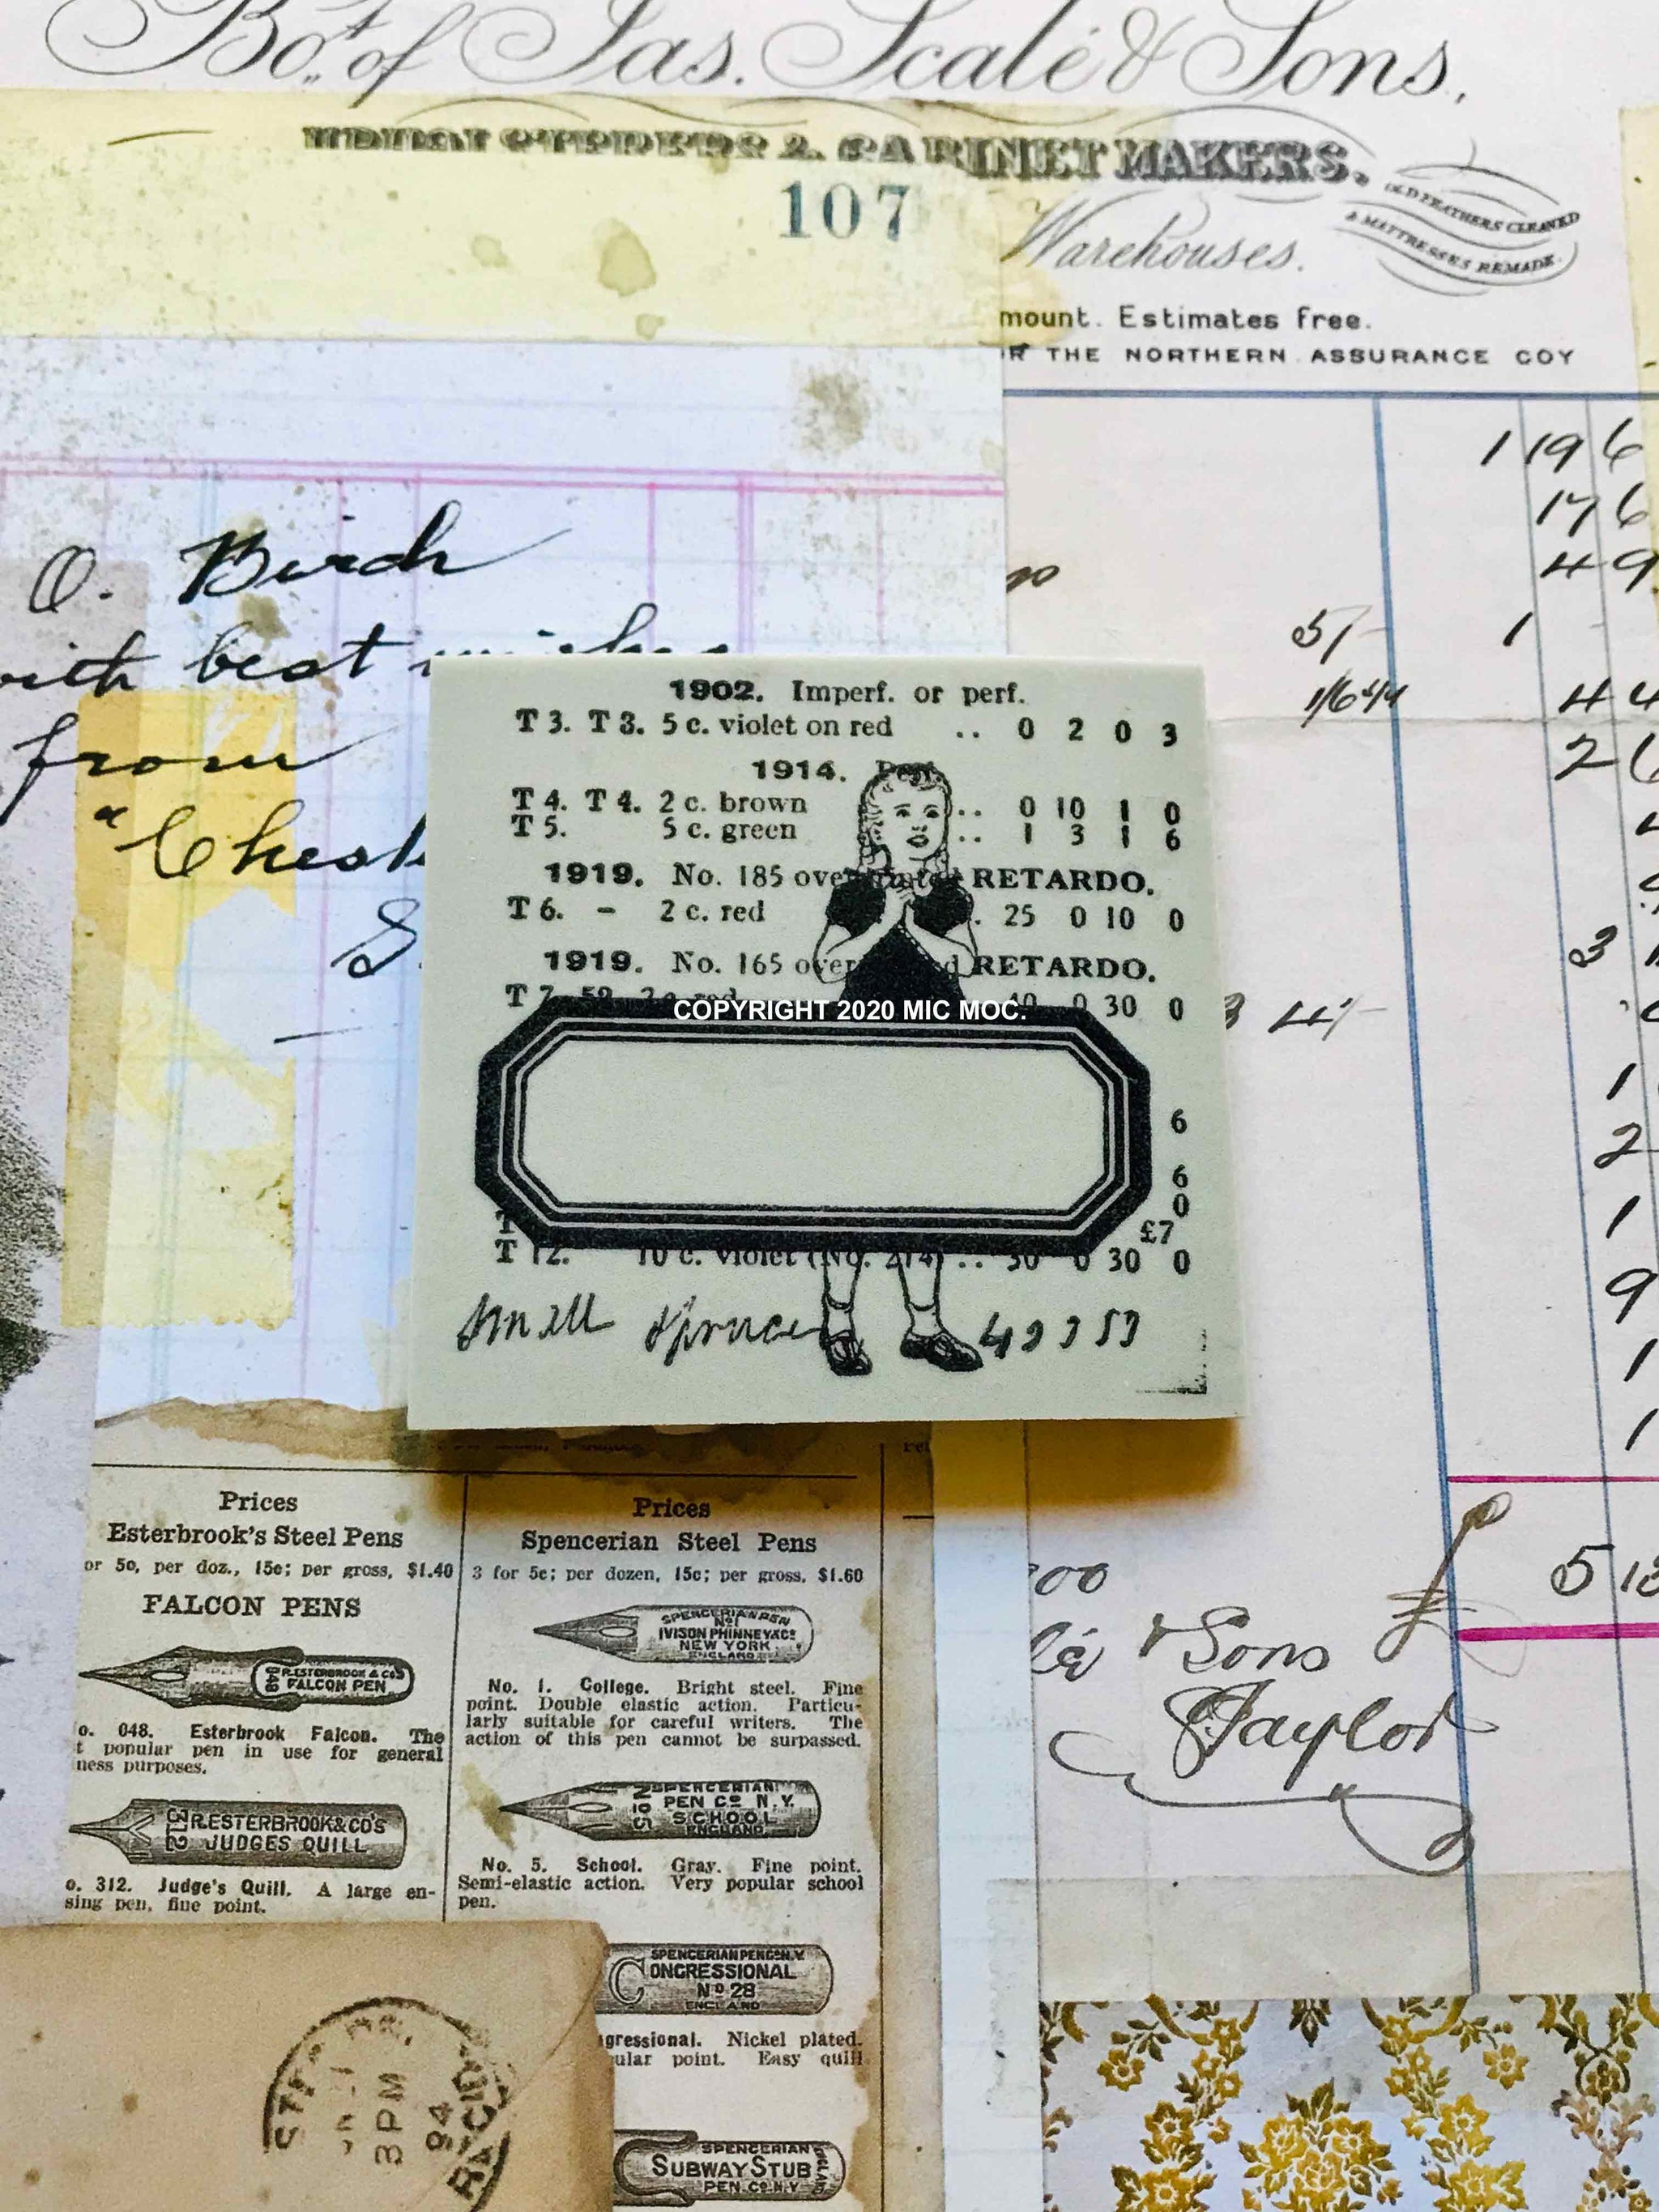 Bot. of Jas. Scalé & Sons,
& CABINET MAKERS.
107
OLD FEATHERS CLEANED
& MATTRESSES REMADE.
Warehouses.
mount. Estimates free.
OR THE NORTHERN ASSURANCE COY
1 19 6
17 6
4 9
O. Birch
with best wishes
from
"Chest
S.
5/- 1
4 4
2 6
3
1902. Imperf. or perf.
T 3. T 3. 5 c. violet on red .. 0 2 0 3
1914. Perf.
T 4. T 4. 2 c. brown .. 0 10 1 0
T 5. 5 c. green .. 1 3 1 6
1919. No. 185 overprinted RETARDO.
T 6. - 2 c. red . 25 0 10 0
1919. No. 165 overprinted RETARDO.
T 7. 52 2 c. red 40 0 30 0
COPYRIGHT 2020 MIC MOC.
6
6
0
T £7
T 12. 10 c. violet (No. 214) .. 50 0 30 0
Small Spruce
1
2
1
9
1
1
Prices
Esterbrook's Steel Pens
or 5c, per doz., 15c; per gross, $1.40
FALCON PENS
R. ESTERBROOK & CO'S
FALCON PEN
048
o. 048. Esterbrook Falcon. The
t popular pen in use for general
ness purposes.
R. ESTERBROOK & CO'S
312 JUDGES QUILL
o. 312. Judge's Quill. A large en-
sing pen, fine point.
Prices
Spencerian Steel Pens
3 for 5c; per dozen, 15c; per gross, $1.60
SPENCERIAN PEN
No 1
IVISON PHINNEY & Co
NEW YORK
ENGLAND
No. 1. College. Bright steel. Fine
point. Double elastic action. Particu-
larly suitable for careful writers. The
action of this pen cannot be surpassed.
SPENCERIAN
PEN Co N.Y.
No 5 SCHOOL
ENGLAND
No. 5. School. Gray. Fine point.
Semi-elastic action. Very popular school
pen.
SPENCERIAN PEN Co N.Y.
CONGRESSIONAL
No 28
ENGLAND
gressional. Nickel plated.
ular point. Easy quill
SPENCERIAN
SUBWAY STUB
PEN Co N.Y
ENGLAND
00
£ 5 13
lé & Sons
Taylor
3 PM
94